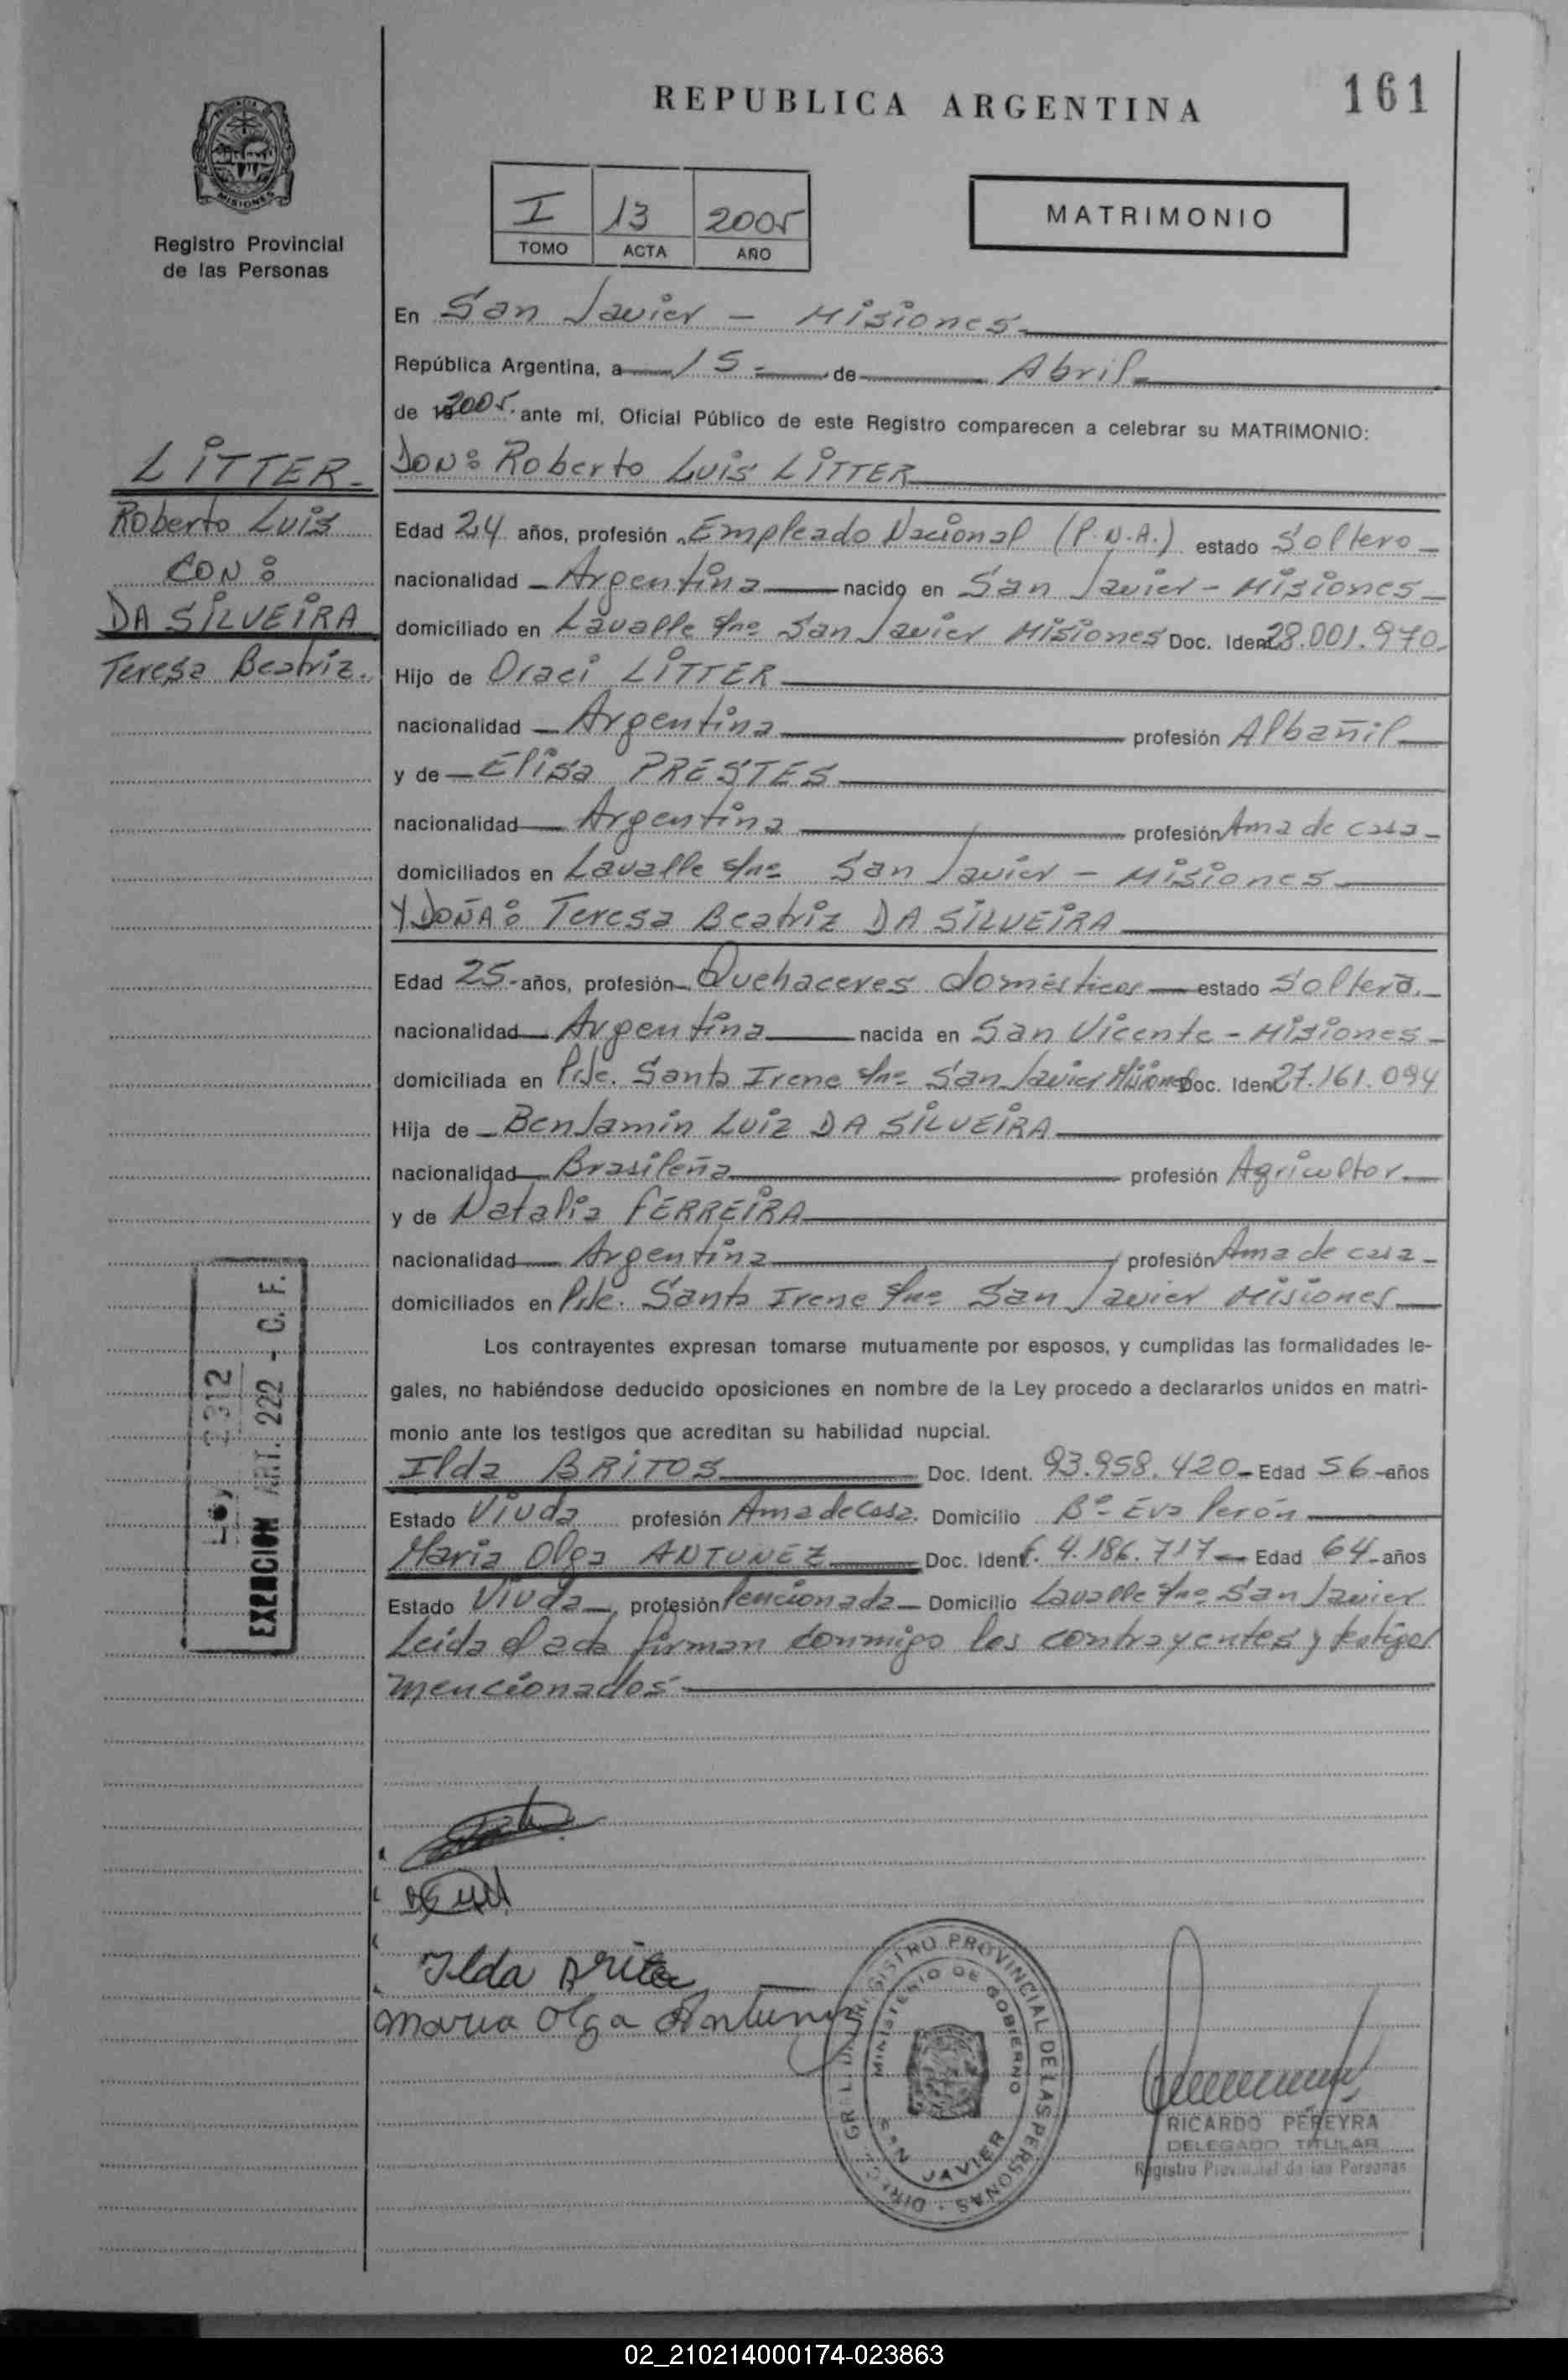 REPUBLICA ARGENTINA
161
MISIONES
Registro Provincial
de las Personas
I 13 2005
TOMO ACTA AÑO
MATRIMONIO
En San Javier - Misiones
República Argentina, a 15 de Abril
de 2005. ante mí, Oficial Público de este Registro comparecen a celebrar su MATRIMONIO:
LITTER
Roberto Luis
CON:
DA SILVEIRA
Teresa Beatriz.
DON: Roberto Luis LITTER
Edad 24 años, profesión Empleado Nacional (P.N.A.) estado Soltero
nacionalidad Argentina nacido en San Javier - Misiones
domiciliado en Lavalle s/nº San Javier Misiones Doc. Iden 28.001.970.
Hijo de Oraci LITTER
nacionalidad Argentina profesión Albañil
y de Elisa PRESTES
nacionalidad Argentina profesión Ama de casa
domiciliados en Lavalle s/nº San Javier - Misiones
Y DOÑA: Teresa Beatriz DA SILVEIRA
Edad 25 años, profesión Quehaceres domésticos estado Soltera.
nacionalidad Argentina nacida en San Vicente - Misiones
domiciliada en Pje. Santa Irene s/nº San Javier Misiones Doc. Iden 27.161.094
Hija de BenJamin Luiz DA SILVEIRA
nacionalidad Brasileña profesión Agricultor
y de Natalia FERREIRA
nacionalidad Argentina profesión Ama de casa
domiciliados en Pje. Santa Irene s/nº San Javier Misiones
Los contrayentes expresan tomarse mutuamente por esposos, y cumplidas las formalidades le-
gales, no habiéndose deducido oposiciones en nombre de la Ley procedo a declararlos unidos en matri-
monio ante los testigos que acreditan su habilidad nupcial.
Ilda BRITOS Doc. Ident. 93.958.420 Edad 56 años
Estado Viuda profesión Ama de casa. Domicilio Bº Eva Perón
Maria Olga ANTUNEZ Doc. Ident. 4.186.717 Edad 64 años
Estado Viuda profesión Pencionada Domicilio Lavalle s/nº San Javier
Leida el acta firman conmigo los contrayentes y testigos
mencionados
Ley 2312
EXENCION ART. 222 - C. F.
Ilda
Maria Olga Antunez
DIREC. GRAL. DEL REGISTRO PROVINCIAL DE LAS PERSONAS
MINISTERIO DE GOBIERNO
SAN JAVIER
RICARDO PEREYRA
DELEGADO TITULAR
Registro Provincial de las Personas
02_210214000174-023863